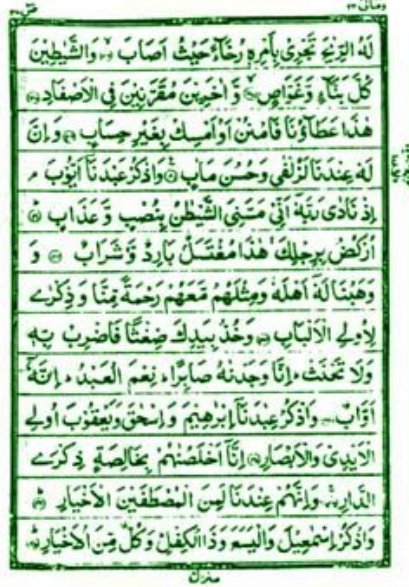 ومالى ٢٣ ص ٣٨
لَهُ الرِّيْحَ تَجْرِىْ بِاَمْرِهٖ رُخَآءً حَيْثُ اَصَابَ ۙ وَالشَّيٰطِيْنَ
كُلَّ بَنَّآءٍ وَّغَوَّاصٍ ۙ وَّاٰخَرِيْنَ مُقَرَّنِيْنَ فِى الْاَصْفَادِ
هٰذَا عَطَآؤُنَا فَامْنُنْ اَوْ اَمْسِكْ بِغَيْرِ حِسَابٍ وَاِنَّ
لَهٗ عِنْدَنَا لَزُلْفٰى وَحُسْنَ مَاٰبٍ وَاذْكُرْ عَبْدَنَآ اَيُّوْبَ ۘ
اِذْ نَادٰى رَبَّهٗٓ اَنِّىْ مَسَّنِىَ الشَّيْطٰنُ بِنُصْبٍ وَّعَذَابٍ
اُرْكُضْ بِرِجْلِكَ ۚ هٰذَا مُغْتَسَلٌۢ بَارِدٌ وَّشَرَابٌ وَ
وَهَبْنَا لَهٗٓ اَهْلَهٗ وَمِثْلَهُمْ مَّعَهُمْ رَحْمَةً مِّنَّا وَذِكْرٰى
لِاُولِى الْاَلْبَابِ وَخُذْ بِيَدِكَ ضِغْثًا فَاضْرِبْ بِّهٖ
وَلَا تَحْنَثْ ؕ اِنَّا وَجَدْنٰهُ صَابِرًا ؕ نِعْمَ الْعَبْدُ ؕ اِنَّهٗٓ
اَوَّابٌ وَاذْكُرْ عِبٰدَنَآ اِبْرٰهِيْمَ وَاِسْحٰقَ وَيَعْقُوْبَ اُولِى
الْاَيْدِىْ وَالْاَبْصَارِ اِنَّآ اَخْلَصْنٰهُمْ بِخَالِصَةٍ ذِكْرَى
الدَّارِ ۚ وَاِنَّهُمْ عِنْدَنَا لَمِنَ الْمُصْطَفَيْنَ الْاَخْيَارِ
وَاذْكُرْ اِسْمٰعِيْلَ وَالْيَسَعَ وَذَا الْكِفْلِ ؕ وَكُلٌّ مِّنَ الْاَخْيَارِ
منزل